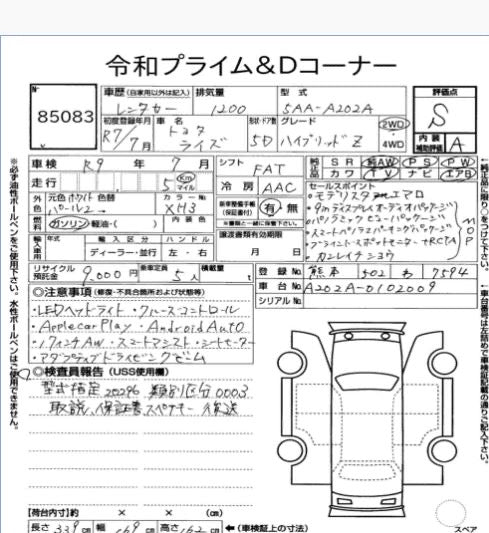 令和プライム&Dコーナー
No.
85083
車歴 (自家用以外は記入)
レンタカー
排気量
1200
型式
5AA-A202A
評価点
S
初度登録年月
R7/7月
車名
トヨタ
ライズ
形状・ドア数
5D
グレード
ハイブリッドZ
2WD
4WD
内装
補助評価
A
車検 R9 年 7 月
シフト
FAT
純正品
SR 純AW PS PW
カワ TV ナビ エアB
走行 5 Km
マイル
冷房
AAC
外色
元色 ホワイト 色替
パール2
カラーNo.
XH3
燃料
ガソリン・軽油・( )
内装色
新車整備手帳
(保証書付)
有・無
セールスポイント
・モデリスタエアロ
・9inディスプレイオーディオパッケージ
・パノラミックビューパッケージ
・スマートパノラミックパーキングパッケージ
・ブラインドスポットモニター+RCTA
・カエレイチョウ
MOP
輸入車用
年式
輸入区分
ディーラー・並行
ハンドル
左・右
譲渡書類有効期限
月 日
リサイクル
預託金
9,000 円
乗車定員
5 人
積載量
t
登録No. 熊本 502 わ 7594
車台No. A202A-0102009
シリアルNo.
◎注意事項 (修復・不具合箇所および状態等)
・LEDヘッドライト・クルーズコントロール
・Applecar Play・Android Auto
・17インチAW・スマートアシスト・シートヒーター
・アダプティブドライビングビーム
◎検査員報告 (USS使用欄)
型式指定 20296 類別区分 0003
取説、保証書、スペアキー 後送
【荷台内寸】約 × × (cm)
長さ 339 cm 幅 169 cm 高さ 162 cm ←(車検証上の寸法)
スペア
※必ず油性ボールペンをご使用下さい。水性ボールペンはご使用できません。
←純正品に限り○をつけて下さい。
←車台番号は左詰めで車検証記載の通りご記入下さい。